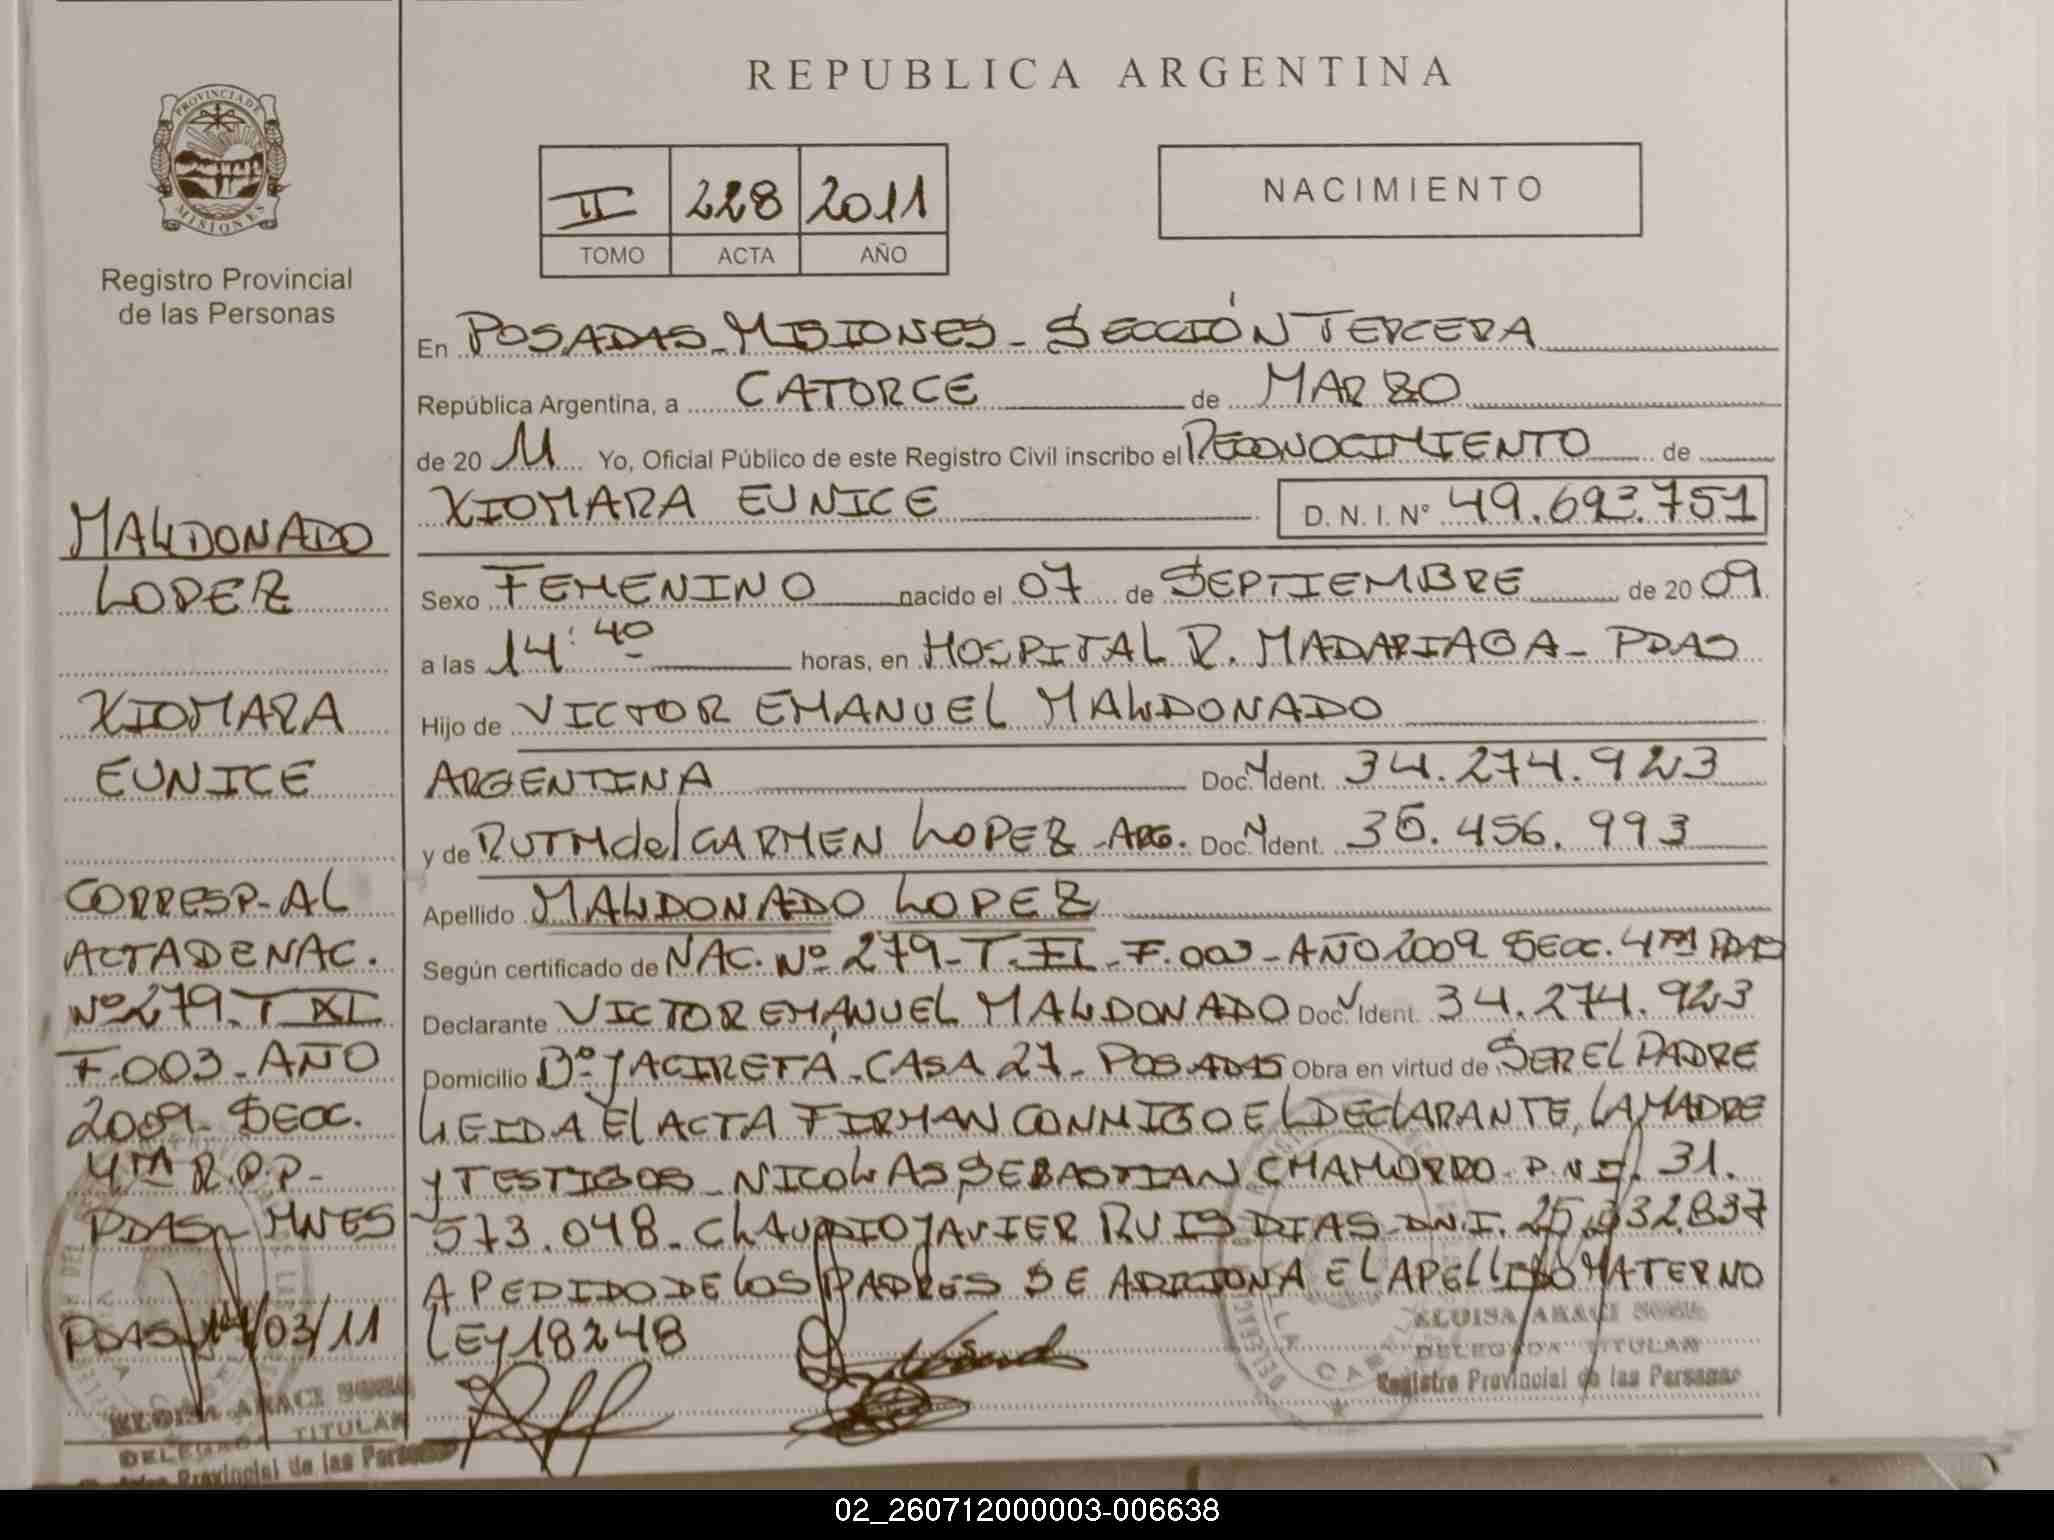 REPUBLICA ARGENTINA
PROVINCIA DE
MISIONES
Registro Provincial
de las Personas
II 228 2011
TOMO ACTA AÑO
NACIMIENTO
MALDONADO
LOPEZ
XIOMARA
EUNICE
CORRESP. AL
ACTA DE NAC.
Nº 279 - T XI
F. 003 - AÑO
2009 - SECC.
4TA R.P.P.-
PDAS - MNES
PDAS 14/03/11
DELEGADA TITULAR
Provincial de las Personas
En POSADAS - MISIONES - SECCIÓN TERCERA
República Argentina, a CATORCE de MARZO
de 20 11 Yo, Oficial Público de este Registro Civil inscribo el RECONOCIMIENTO de
XIOMARA EUNICE D. N. I. Nº 49.693.751
Sexo FEMENINO nacido el 07 de SEPTIEMBRE de 20 09
a las 14:40 horas, en HOSPITAL R. MADARIAGA - PDAS
Hijo de VICTOR EMANUEL MALDONADO
ARGENTINA Doc. Ident. 34.274.923
y de RUTH del CARMEN LOPEZ - ARG. Doc. Ident. 36.456.993
Apellido MALDONADO LOPEZ
Según certificado de NAC. Nº 279 - T. II - F. 003 - AÑO 2009 SECC. 4TA PDAS
Declarante VICTOR EMANUEL MALDONADO Doc. Ident. 34.274.923
Domicilio Bº YACIRETÁ - CASA 27 - POSADAS Obra en virtud de SER EL PADRE
LEIDA El ACTA FIRMAN CONMIGO El DEClARANTE, LA MADRE
y TESTIGOS - NICOLAS SEBASTIAN CHAMORRO - D.N.I. 31.
573.048 - CLAUDIO JAVIER RUIS DIAS - DN.I. 25. 32.837
A PEDIDO DE LOS PADRES SE ADICIONA El APELLIDO MATERNO
LEY 18248
DELEGADA TITULAR
Registro Provincial de las Personas
02_260712000003-006638